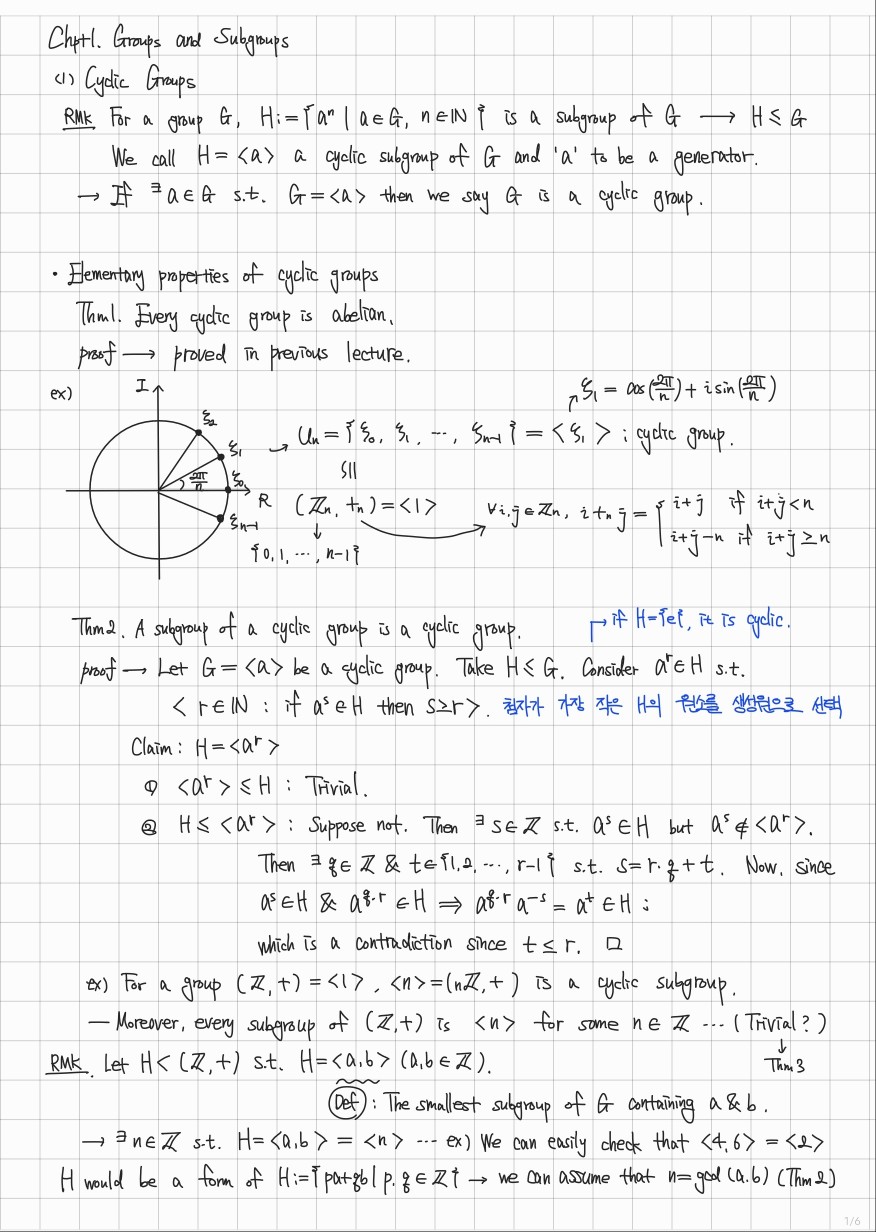 Chpt1. Groups and Subgroups
(1) Cyclic Groups
RMK For a group G, H:={aⁿ | a∈G, n∈ℕ} is a subgroup of G ⟶ H ≤ G
We call H=<a> a cyclic subgroup of G and 'a' to be a generator.
→ If ∃a∈G s.t. G=<a> then we say G is a cyclic group.
• Elementary properties of cyclic groups
Thm1. Every cyclic group is abelian.
proof ⟶ proved in previous lecture.
ex) I ξ₁ = cos(2π/n) + i sin(2π/n)
ξ₂ ξ₁ ξ₀ ξₙ₋₁ 2π/n R
→ Uₙ = {ξ₀, ξ₁, ⋯, ξₙ₋₁} = <ξ₁> ; cyclic group.
≅
(ℤₙ, +ₙ) = <1> ∀i,j∈ℤₙ, i +ₙ j = { i+j if i+j<n
i+j−n if i+j≥n
{0, 1, ⋯, n-1}
Thm2. A subgroup of a cyclic group is a cyclic group. if H={e}, it is cyclic.
proof ⟶ Let G=<a> be a cyclic group. Take H≤G. Consider aʳ∈H s.t.
< r∈ℕ : if aˢ∈H then s≥r >. 첨자가 가장 작은 H의 원소를 생성원으로 선택
Claim: H=<aʳ>
① <aʳ> ≤ H : Trivial.
② H ≤ <aʳ> : Suppose not. Then ∃s∈ℤ s.t. aˢ∈H but aˢ∉<aʳ>.
Then ∃q∈ℤ & t∈{1,2,⋯,r-1} s.t. s=r·q+t. Now, since
aˢ∈H & a^{q·r}∈H ⟹ a^{q·r}a^{-s} = aᵗ∈H ;
which is a contradiction since t≤r. □
ex) For a group (ℤ,+)=<1>, <n>=(nℤ,+) is a cyclic subgroup.
— Moreover, every subgroup of (ℤ,+) is <n> for some n∈ℤ ⋯ (Trivial?)
↓
Thm3
RMK. Let H<(ℤ,+) s.t. H=<a,b> (a,b∈ℤ).
Def : The smallest subgroup of G containing a & b.
→ ∃n∈ℤ s.t. H=<a,b>=<n> ⋯ ex) We can easily check that <4,6> = <2>
H would be a form of H:={pa+qb | p,q∈ℤ} → we can assume that n=gcd(a,b) (Thm2)
1/6